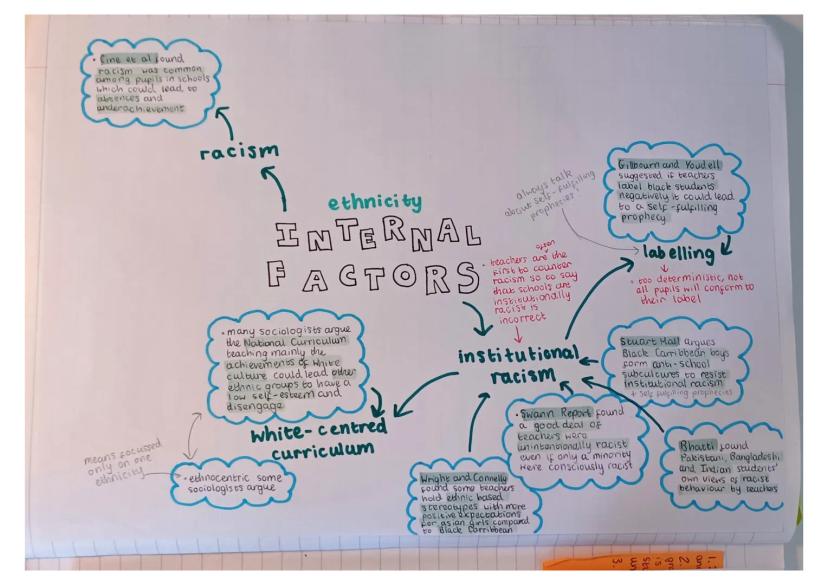 • Fine et al found
racism was common
among pupils in schools
which could lead to
absences and
underachievement
racism
ethnicity
INTERNAL
FACTORS
always talk
about self-fulfilling
prophecies!
Gillbourn and Youdell
suggested if teachers
label black students
negatively it could lead
to a self-fulfilling
prophecy
labelling
• too deterministic, not
all pupils will conform to
their label
often
• teachers are the
first to counter
racism so to say
that schools are
institutionally
racist is
incorrect
institutional
racism
Stuart Hall argues
Black Carribbean boys
form anti-school
subcultures to resist
institutional racism
+ self fulfilling prophecies
• many sociologists argue
the National Curriculum
teaching mainly the
achievements of white
culture could lead other
ethnic groups to have a
low self-esteem and
disengage
white-centred
curriculum
means focussed
only on one
ethnicity
• ethnocentric some
sociologists argue
• Swann Report found
a good deal of
teachers were
unintentionally racist
even if only a minority
were consciously racist
Bhatti found
Pakistani, Bangladeshi
and Indian students'
own views of racist
behaviour by teachers
Wright and Connelly
found some teachers
hold ethnic based
stereotypes with more
positive expectations
for asian girls compared
to Black Carribbean